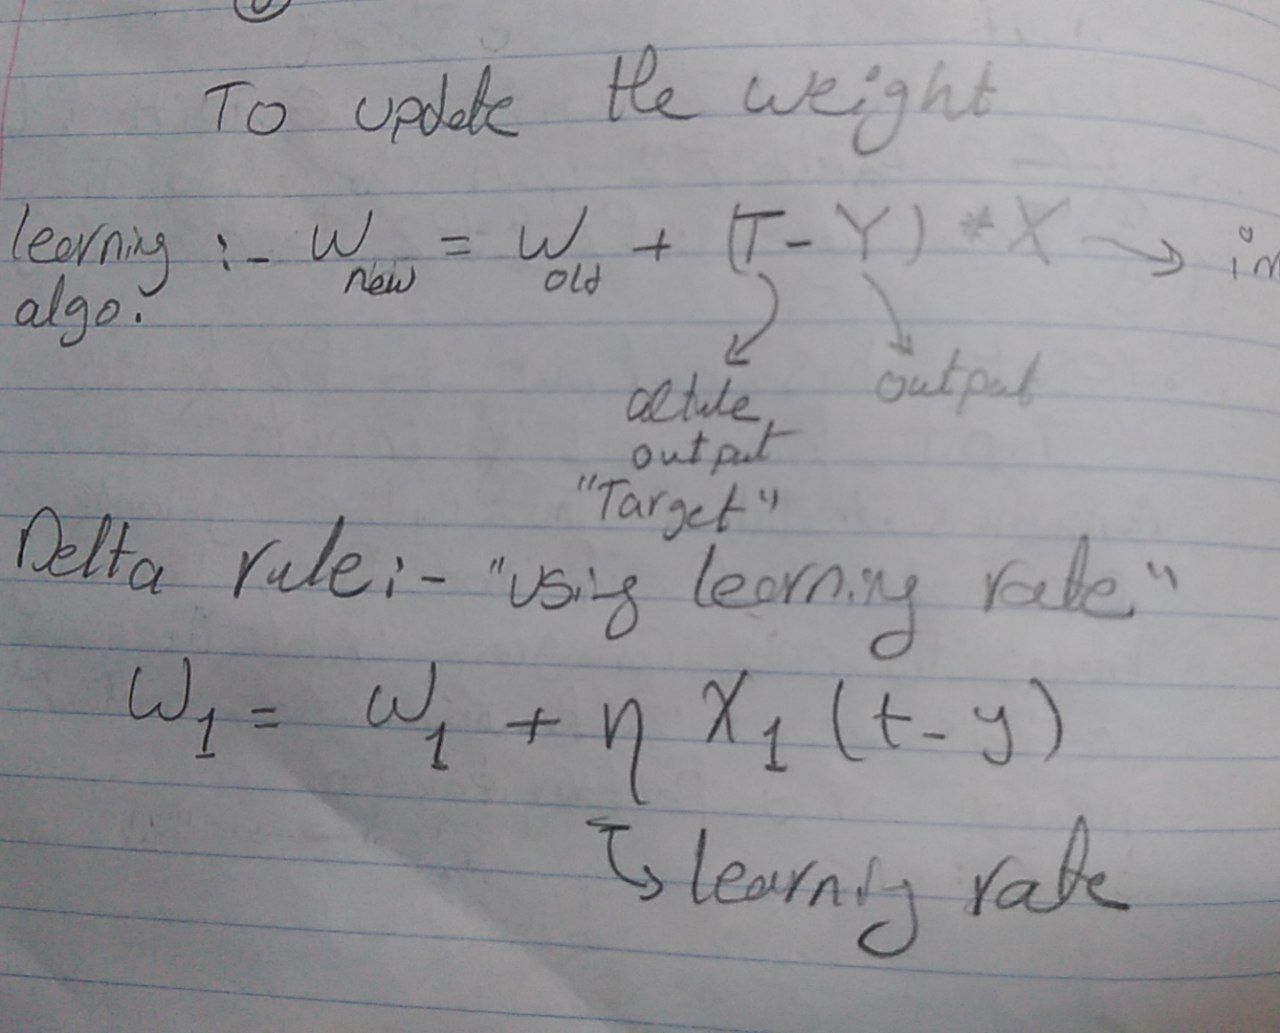 To update the weight
learning :- W new = W old + (T - Y) * X → in
algo.
output
output
"Target"
Delta rule:- "using learning rate"
W1 = W1 + η X1 (t - y)
↳ learning rate